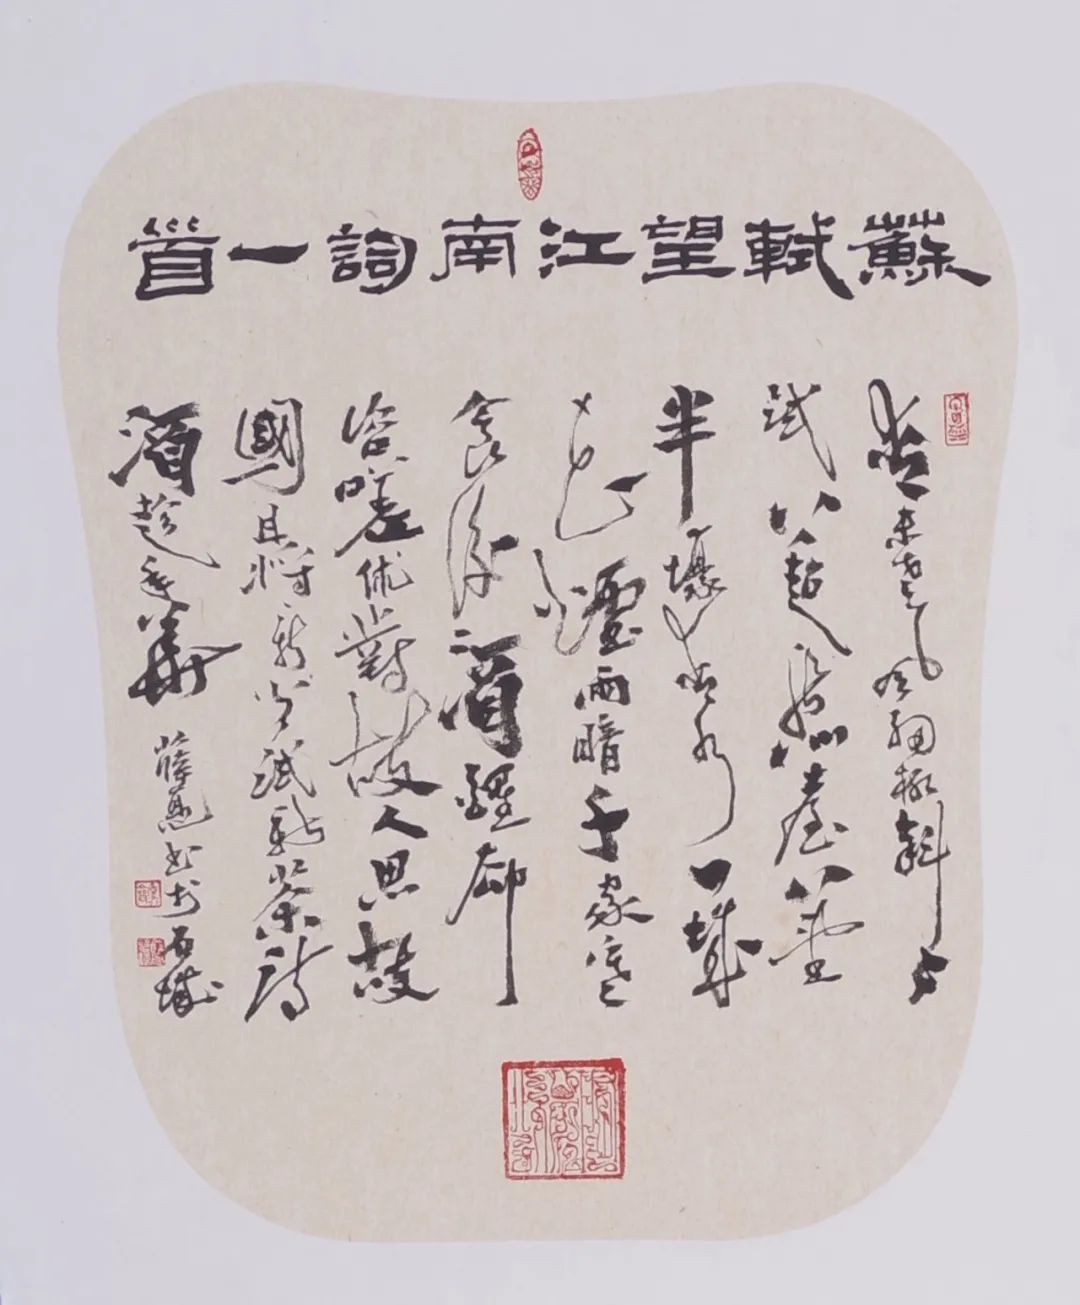 蘇軾望江南詞一首
春未老風細柳斜々
試上超然臺上望
半壕春水一城
花煙雨暗千家寒
食後酒醒卻
咨嗟休對故人思故
國且將新火試新茶詩
酒趁年華
書於石城